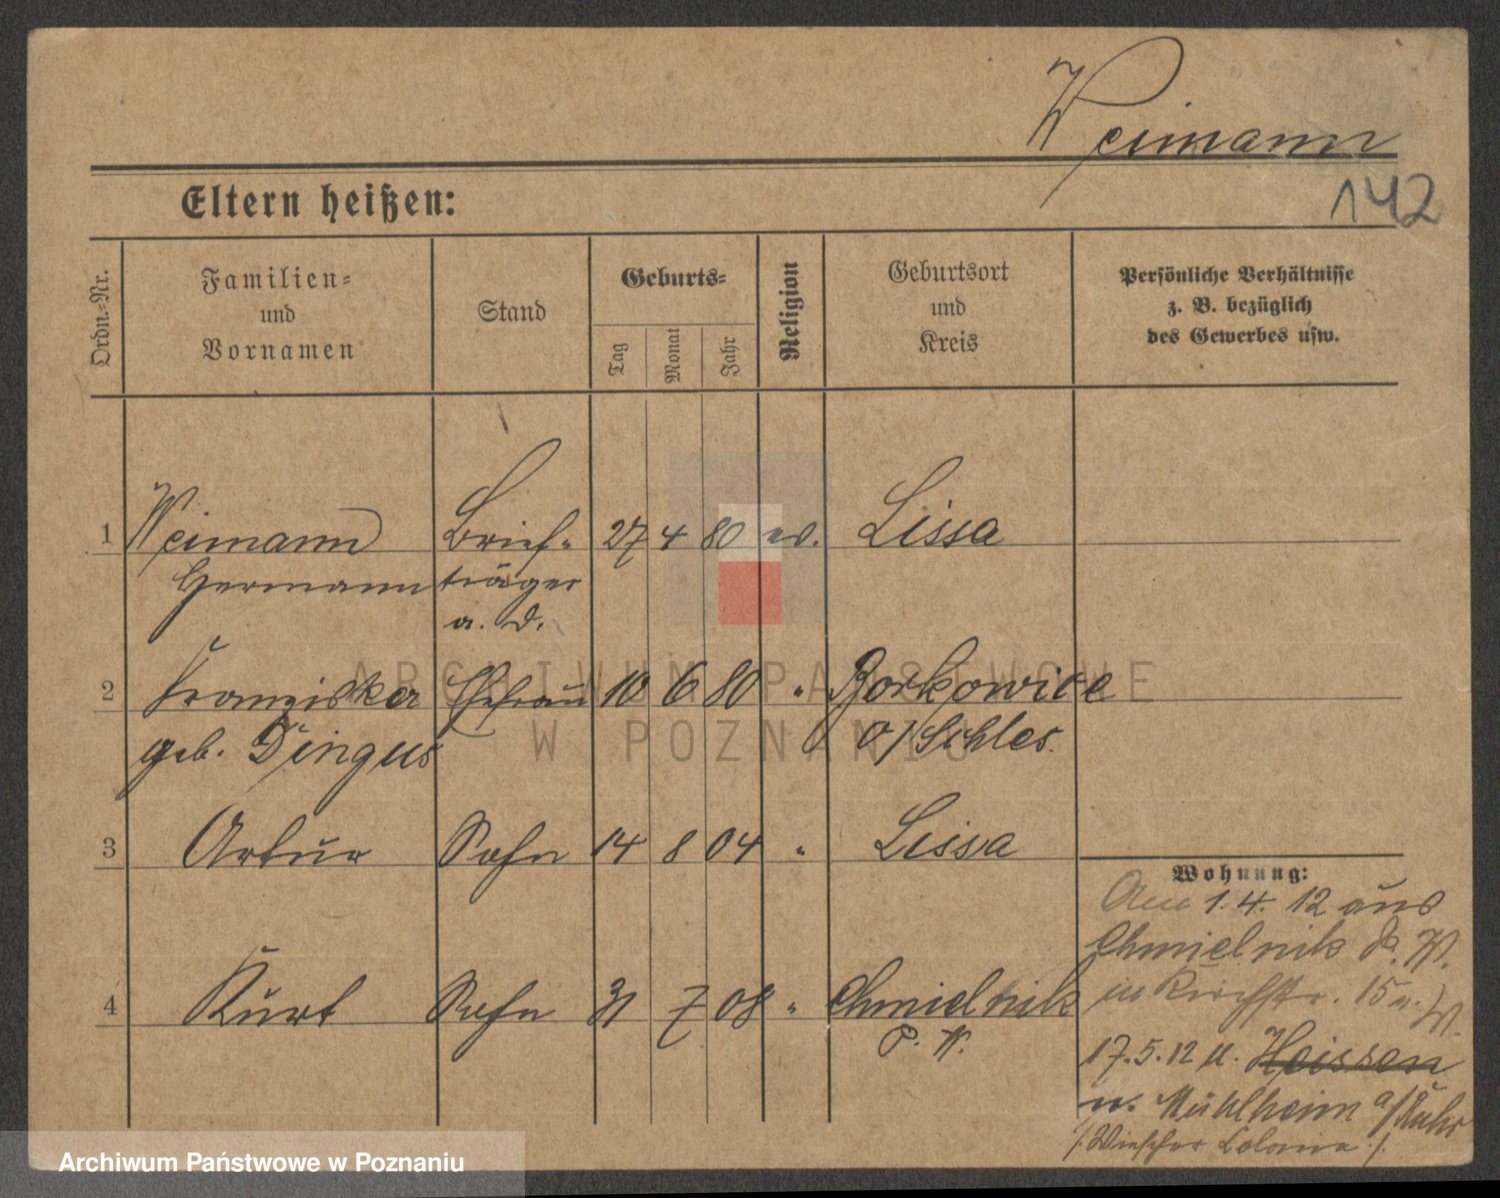 Weimann
142
Eltern heißen:
Ordn.-Nr.
Familien-
und
Vornamen
Stand
Geburts-
Tag
Monat
Jahr
Religion
Geburtsort
und
Kreis
Persönliche Verhältnisse
z. B. bezüglich
des Gewerbes usw.
1 Weimann Brief- 27 4 80 ev. Lissa
Hermann träger
a. D.
2 Franziska Ehefrau 10 6 80 " Borkowice
geb. Dingus O/Schles.
3 Artur Sohn 14 8 04 " Lissa
4 Kurt Sohn 31 7 08 " Chmielnik
P. W.
Wohnung:
Am 1. 4. 12 aus
Chmielnik P. W.
in Kirchstr. 15
17. 5. 12 Heissen
n. Mühlheim a/Ruhr
/. Wiescher Colonie /.
ARCHIWUM PAŃSTWOWE
W POZNANIU
Archiwum Państwowe w Poznaniu